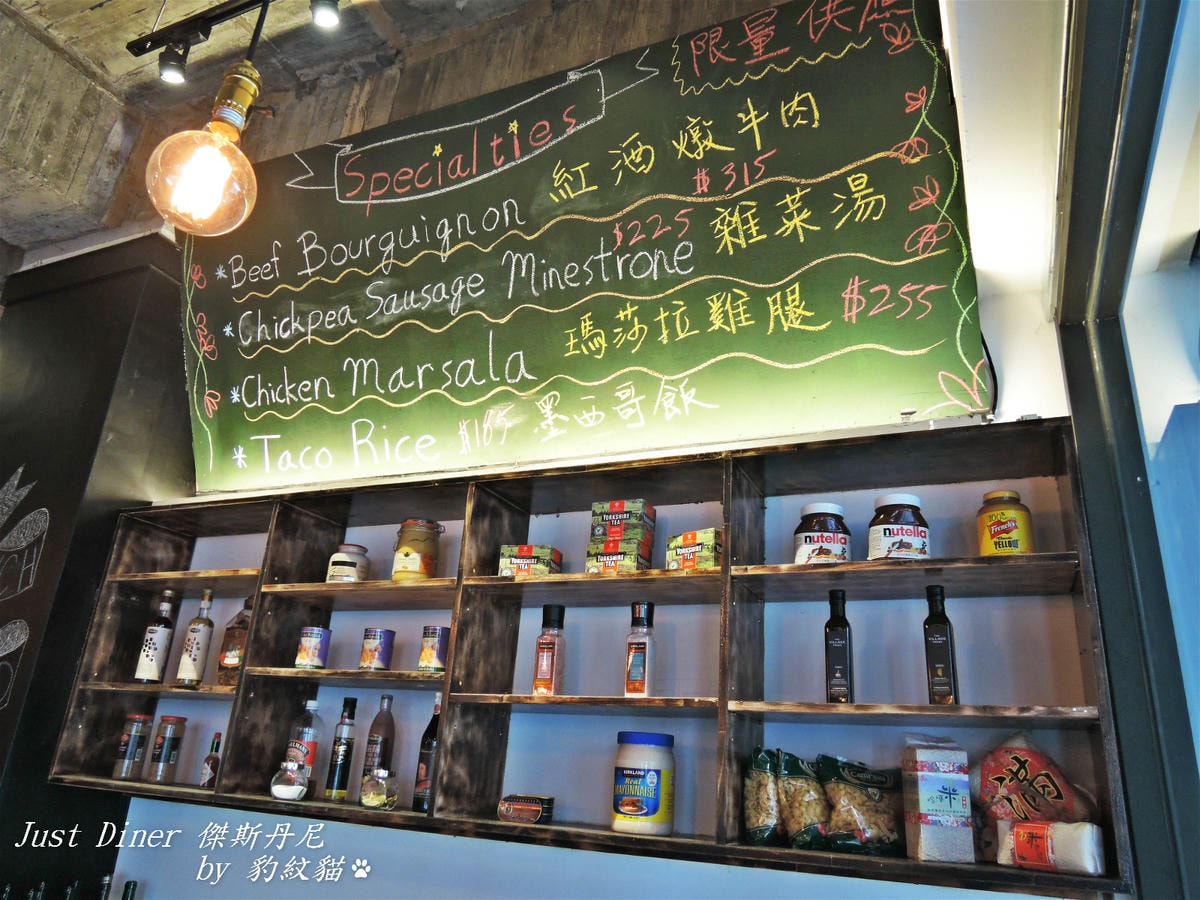 限量供應
Specialties
*Beef Bourguignon 紅酒燉牛肉
$315
$225
*Chickpea Sausage Minestrone 雜菜湯
*Chicken Marsala 瑪莎拉雞腿 $255
*Taco Rice $165 墨西哥飯
YORKSHIRE TEA
YORKSHIRE TEA
YORKSHIRE TEA
YORKSHIRE TEA
nutella
nutella
French's
YELLOW
KIRKLAND
Real
MAYONNAISE
滿
米
Just Diner 傑斯丹尼
by 豹紋貓